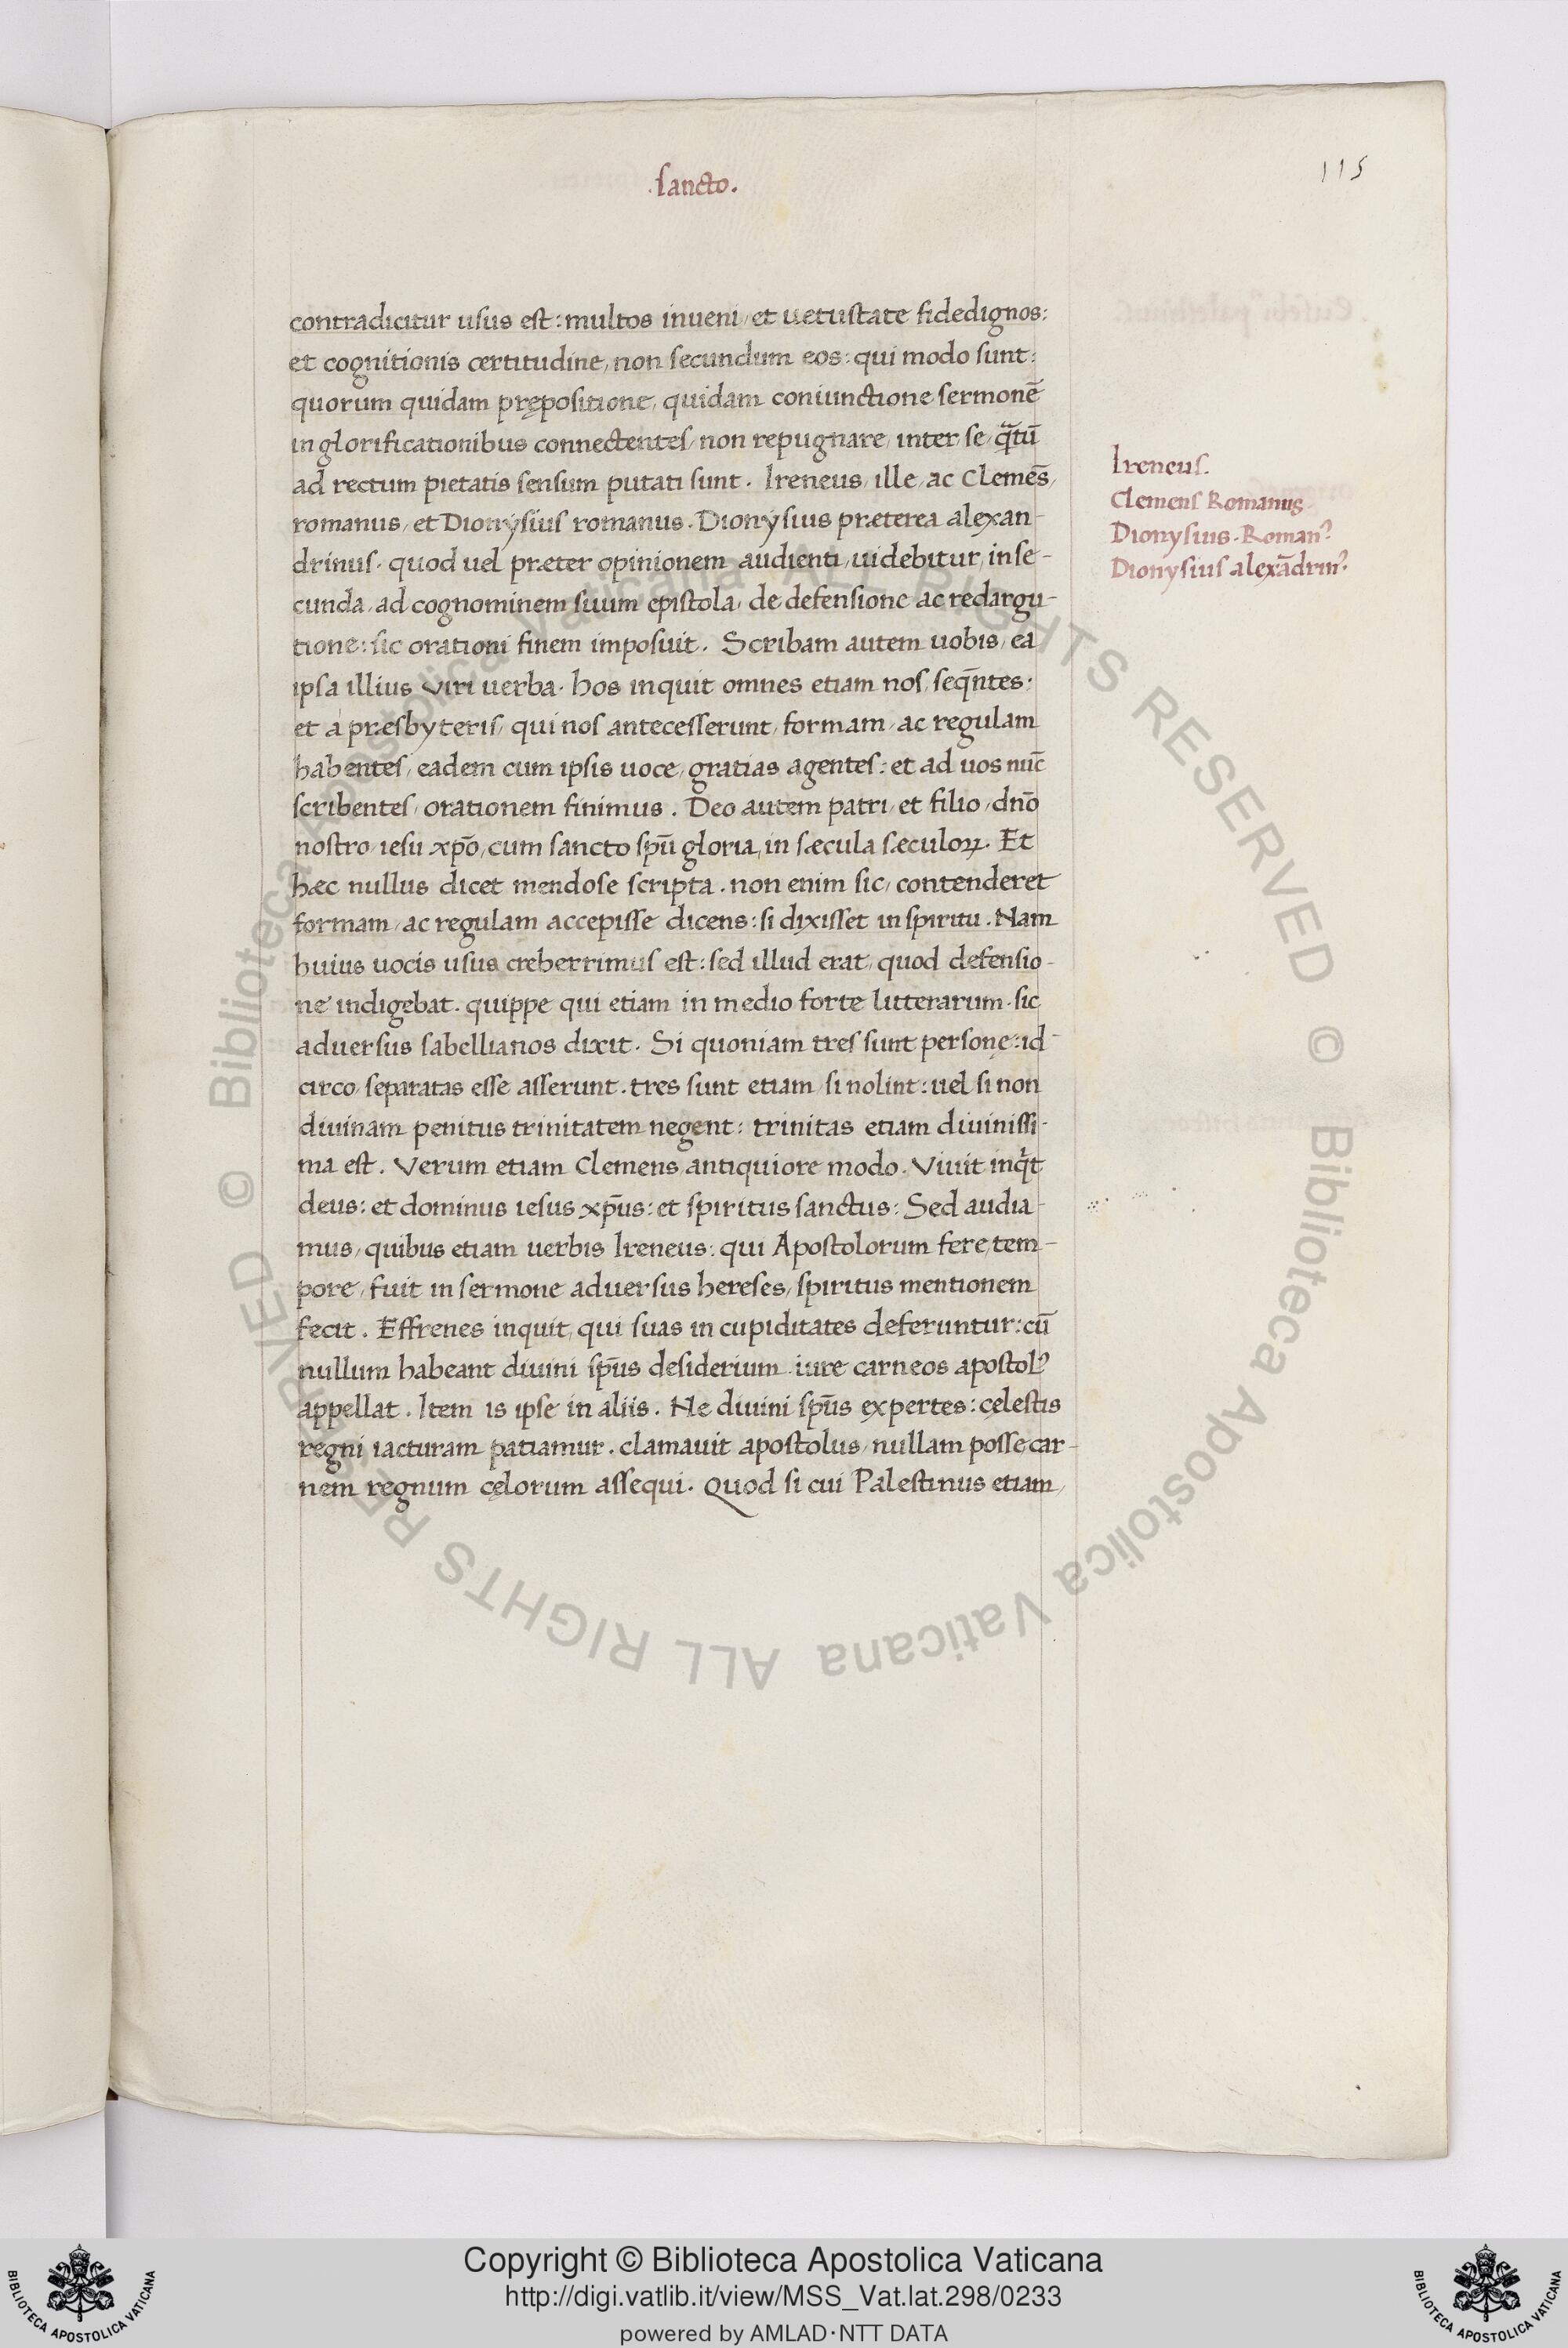 .sancto.
115
contradicitur usus est: multos inueni, et uetustate fidedignos:
et cognitionis certitudine, non secundum eos: qui modo sunt:
quorum quidam prępositione, quidam coniunctione sermonē
in glorificationibus connectentes, non repugnare, inter se, q̄tū
ad rectum pietatis sensum putati sunt. Ireneus, ille, ac Clemēs,
romanus, et Dionysius romanus. Dionysius præterea alexan-
drinus. quod uel præter opinionem audienti, uidebitur, in se-
cunda, ad cognominem suum epistola, de defensione ac redargu-
tione: sic orationi finem imposuit. Scribam autem uobis, ea
ipsa illius viri uerba. hos inquit omnes etiam nos, seq̄ntes:
et a præsbyteris, qui nos antecesserunt, formam, ac regulam
habentes, eadem cum ipsis uoce, gratias agentes: et ad uos nūc
scribentes, orationem finimus. Deo autem patri, et filio, dnō
nostro, iesu xpō, cum sancto spū gloria, in sæcula sæculoꝝ. Et
hæc nullus dicet mendose scripta. non enim sic, contenderet
formam, ac regulam accepisse dicens: si dixisset in spiritu. Nam
huius uocis usus creberrimus est: sed illud erat, quod defensio-
ne indigebat. quippe qui etiam in medio forte litterarum. sic
aduersus sabellianos dixit. Si quoniam tres sunt personę: id-
circo, separatas esse asserunt. tres sunt etiam, si nolint: uel si non
diuinam penitus trinitatem negent: trinitas etiam diuinissi-
ma est. Verum etiam Clemens, antiquiore modo. Viuit inq̇t
deus: et dominus iesus xp̄us: et spiritus sanctus: Sed audia-
mus, quibus etiam uerbis Ireneus: qui Apostolorum fere, tem-
pore, fuit in sermone aduersus hereses, spiritus mentionem
fecit. Effrenes inquit, qui suas in cupiditates deferuntur: cū
nullum habeant diuini sp̄us desiderium. iure carneos apostolꝰ
appellat. Item is ipse in aliis. Ne diuini sp̄us expertes: cęlestis
regni iacturam patiamur. clamauit apostolus, nullam posse car-
nem regnum cęlorum assequi. Quod si cui Palestinus etiam,
Ireneus.
Clemens Romanus
Dionysius. Romanꝰ
Dionysius alexādrinꝰ.
© Biblioteca Apostolica Vaticana ALL RIGHTS RESERVED © Biblioteca Apostolica Vaticana ALL RIGHTS RESERVED
Copyright © Biblioteca Apostolica Vaticana
http://digi.vatlib.it/view/MSS_Vat.lat.298/0233
powered by AMLAD·NTT DATA
BIBLIOTECA APOSTOLICA VATICANA
BIBLIOTECA APOSTOLICA VATICANA